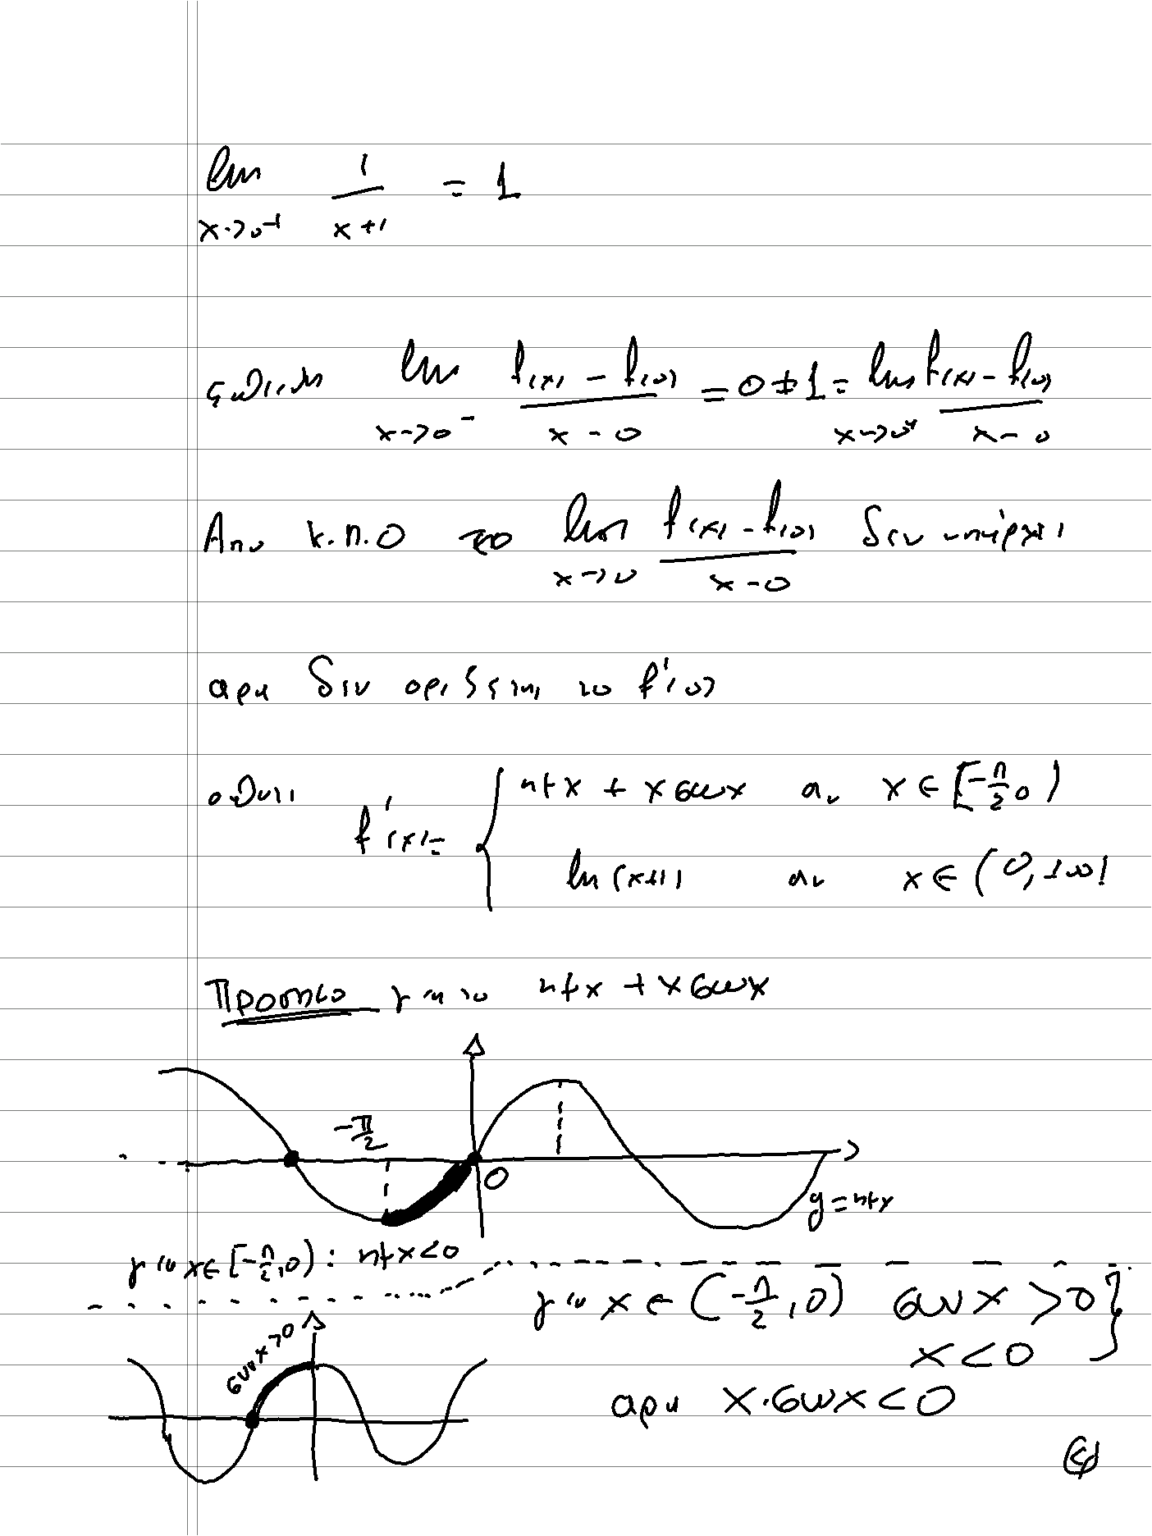 lim x→0⁻ 1/(x+1) = 1
επειδή lim x→0⁻ (f(x) - f(0))/(x - 0) = 0 ≠ 1 = lim x→0⁺ (f(x) - f(0))/(x - 0)
Από κ.π.ο το lim x→0 (f(x) - f(0))/(x - 0) δεν υπάρχει
αρα δεν οριζεται το f'(0)
f'(x) = { ημx + xσυνx αν x ∈ [-π/2, 0)
ln(x+1) αν x ∈ (0, +∞)
Προσημο για το ημx + xσυνx
-π/2
0
y = ημx
για x ∈ [-π/2, 0) : ημx < 0
για x ∈ (-π/2, 0) συνx > 0 }
x < 0
συνx > 0
αρα x·συνx < 0